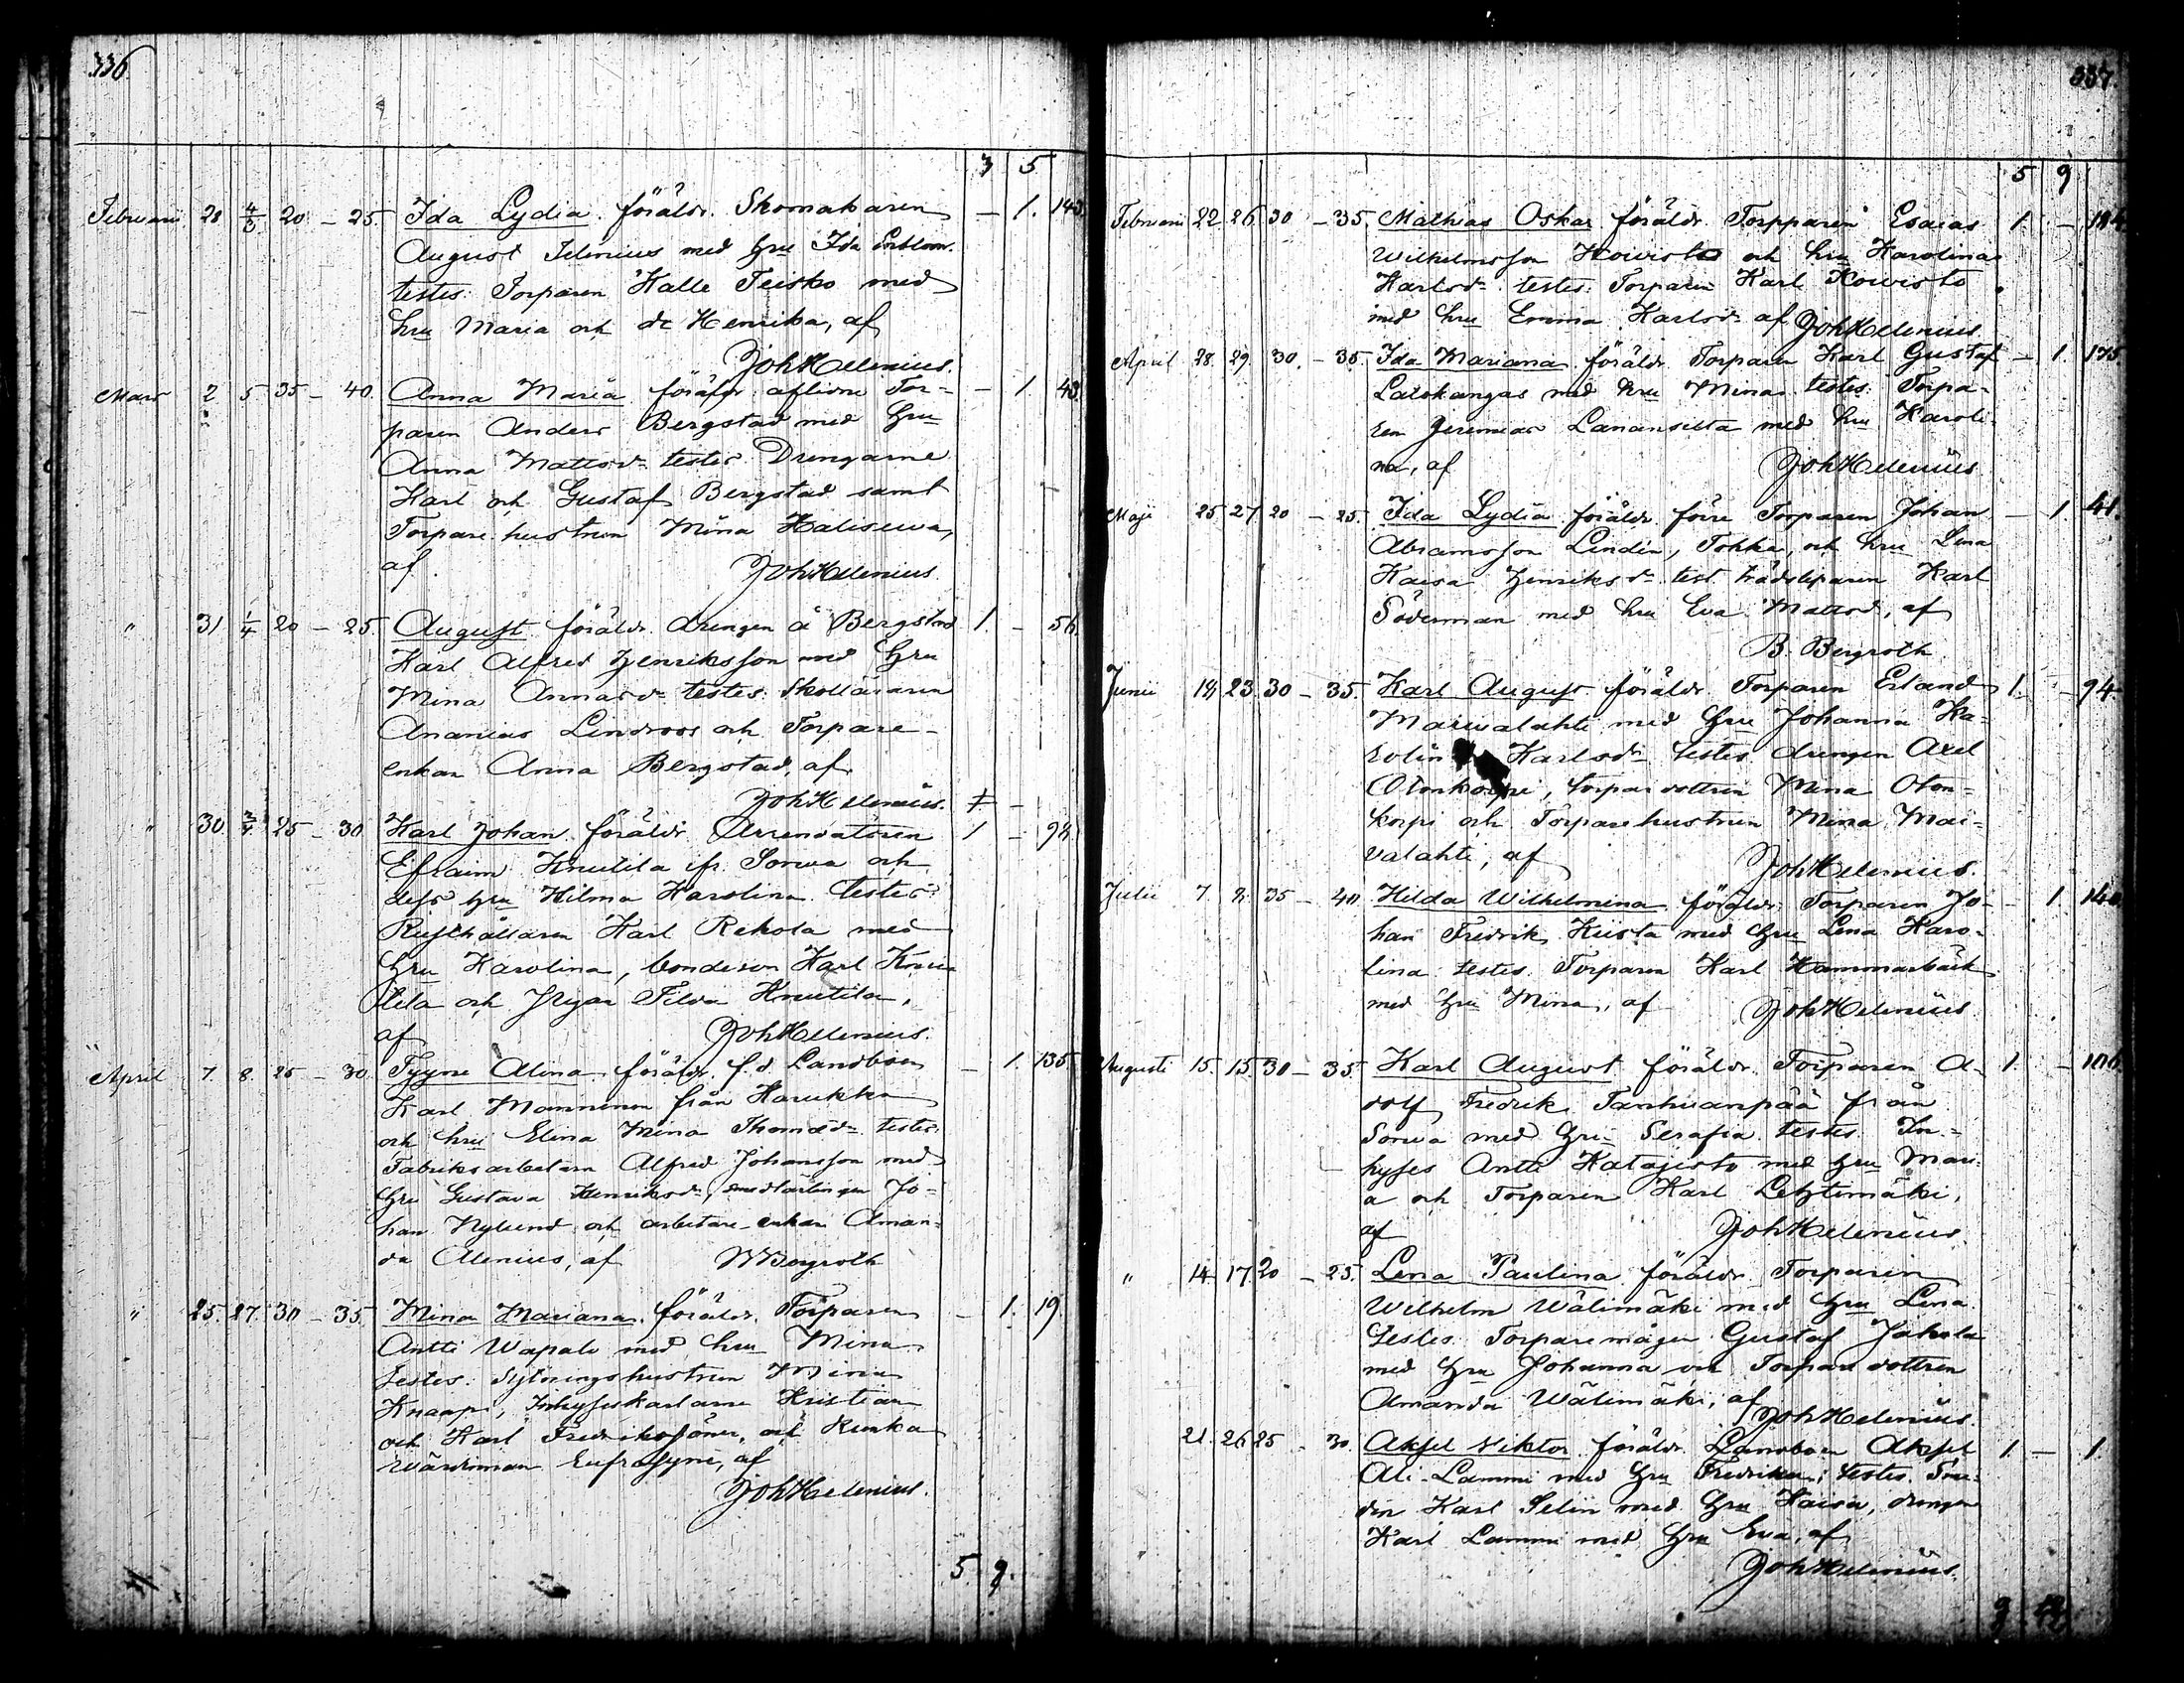 336.
3 5
Februari 28 4/3 20 - 25. Ida Lydia föräldr. Skomakaren - 1. 143.
August Ilenius med hru Ida
testes: Torparen Kalle Teisko med
hru Maria och Henrika, af
Joh Helenius.
Mars 2 5 35 - 40. Anna Maria föräldr. aflidne Tor- - 1. 43.
paren Anders Bergstad med hru
Anna Mattsdr testes Drengarne
Karl och Gustaf Bergstad samt
Torpare hustrun Mina Halisewa,
af Joh Helenius.
" 31 1/4 20 - 25 August föräldr. drengen å Bergstad 1. - 56.
Karl Alfred Henriksson med hru
Mina Annasdr testes: Skolläraren
Ananias Lindroos och Torpare-
enkan Anna Bergstad, af
Joh Helenius.
" 30 3/4 25 - 30 Karl Johan föräldr. Arrendatoren 1 - 94.
Efraim Knutila fr. Sorwa och
dess hru Hilma Karolina testes:
Rusthållaren Karl Rekola med
hru Karolina, bondeson Karl Knu-
tila och Pigan Tilda Knutila,
af Joh Helenius.
April 7. 8. 25 - 30. Tyyne Alina föräldr. f.d. Landboen - 1. 135.
Karl Manninen från Harukka
och hru Elina Mina Thomasdr testes:
Fabriksarbetarn Alfred Johansson med
hru Gustava Henriksdr, smedlärlingen Jo-
han Nylund och arbetare-enkan Aman-
da Alenius, af B Bergroth
" 25. 27. 30 - 35. Mina Mariana föräldr. Torparen - 1. 19.
Antti Wapalo med hru Mina
testes: Sytningshustrun Mina
Knaapi, Inhyseskarlarne Kristian
och Karl Fredrikssöner, och
Eufrosyne, af
Joh Helenius.
5. 9.
337.
5 9
Februari 22. 26 30 - 35. Mathias Oskar föräldr. Torpparen Esaias 1. - 184.
Wilhelmsson Koivisto och hru Karolina
Karlsdr testes: Torparen Karl Koivisto
med hru Emma Karlsdr af Joh Helenius.
April 28. 29. 30. - 35. Ida Mariana föräldr. Torparen Karl Gustaf - 1. 175.
Latokangas med hru Mina testes: Torpa-
ren Jeremias Lanansilta med hru Karoli-
na, af Joh Helenius.
Maji 25 27 20 - 25. Ida Lydia föräldr. förre Torparen Johan - 1. 41.
Abramsson Lindin, Tokka, och hru Lena
Kaisa Henriksdr test. Karl
Söderman med hru Eva Mattsdr, af
B. Bergroth
Junii 19. 23. 30 - 35. Karl August föräldr. Torparen Erland 1. - 94.
Maiwalahti med hru Johanna Ka-
rolin Karlsdr testes: drengen Axel
Otonkorpi, torpardottren Mina Oton-
korpi och Torparehustrun Mina Mai-
valahti, af Joh Helenius.
Julii 7. 8. 35 - 40 Hilda Wilhelmina föräldr. Torparen Jo- - 1. 140.
han Fredrik Kiista med hru Lena Karo-
lina testes: Torparen Karl Hammarbäck
med hru Mina, af Joh Helenius.
Augusti 15. 15. 30 - 35. Karl August föräldr. Torparen A- 1. - 106.
dolf Fredrik Tanhuanpää från
Sorwa med hru Serafia testes: In-
hyses Antti Katajisto med hru Mari-
a och Torparen Karl Lehtimäki,
af Joh Helenius.
" 14. 17. 20 - 25. Lena Paulina föräldr. Torparen
Wilhelm Wälimäki med hru Lena
testes. Torparemågen Gustaf Jakola
med hru Johanna och Torparedottren
Amanda Wälimäki, af Joh Helenius.
21. 26 25 - 30. Aksel Viktor föräldr. Landboen Aksel 1. - 1.
Ali-Lammi med hru Fredrika; testes. Sme-
den Karl Selin med hru Kaisa, drengen
Karl Lammi med hru Eva, af
Joh Helenius.
9. 12